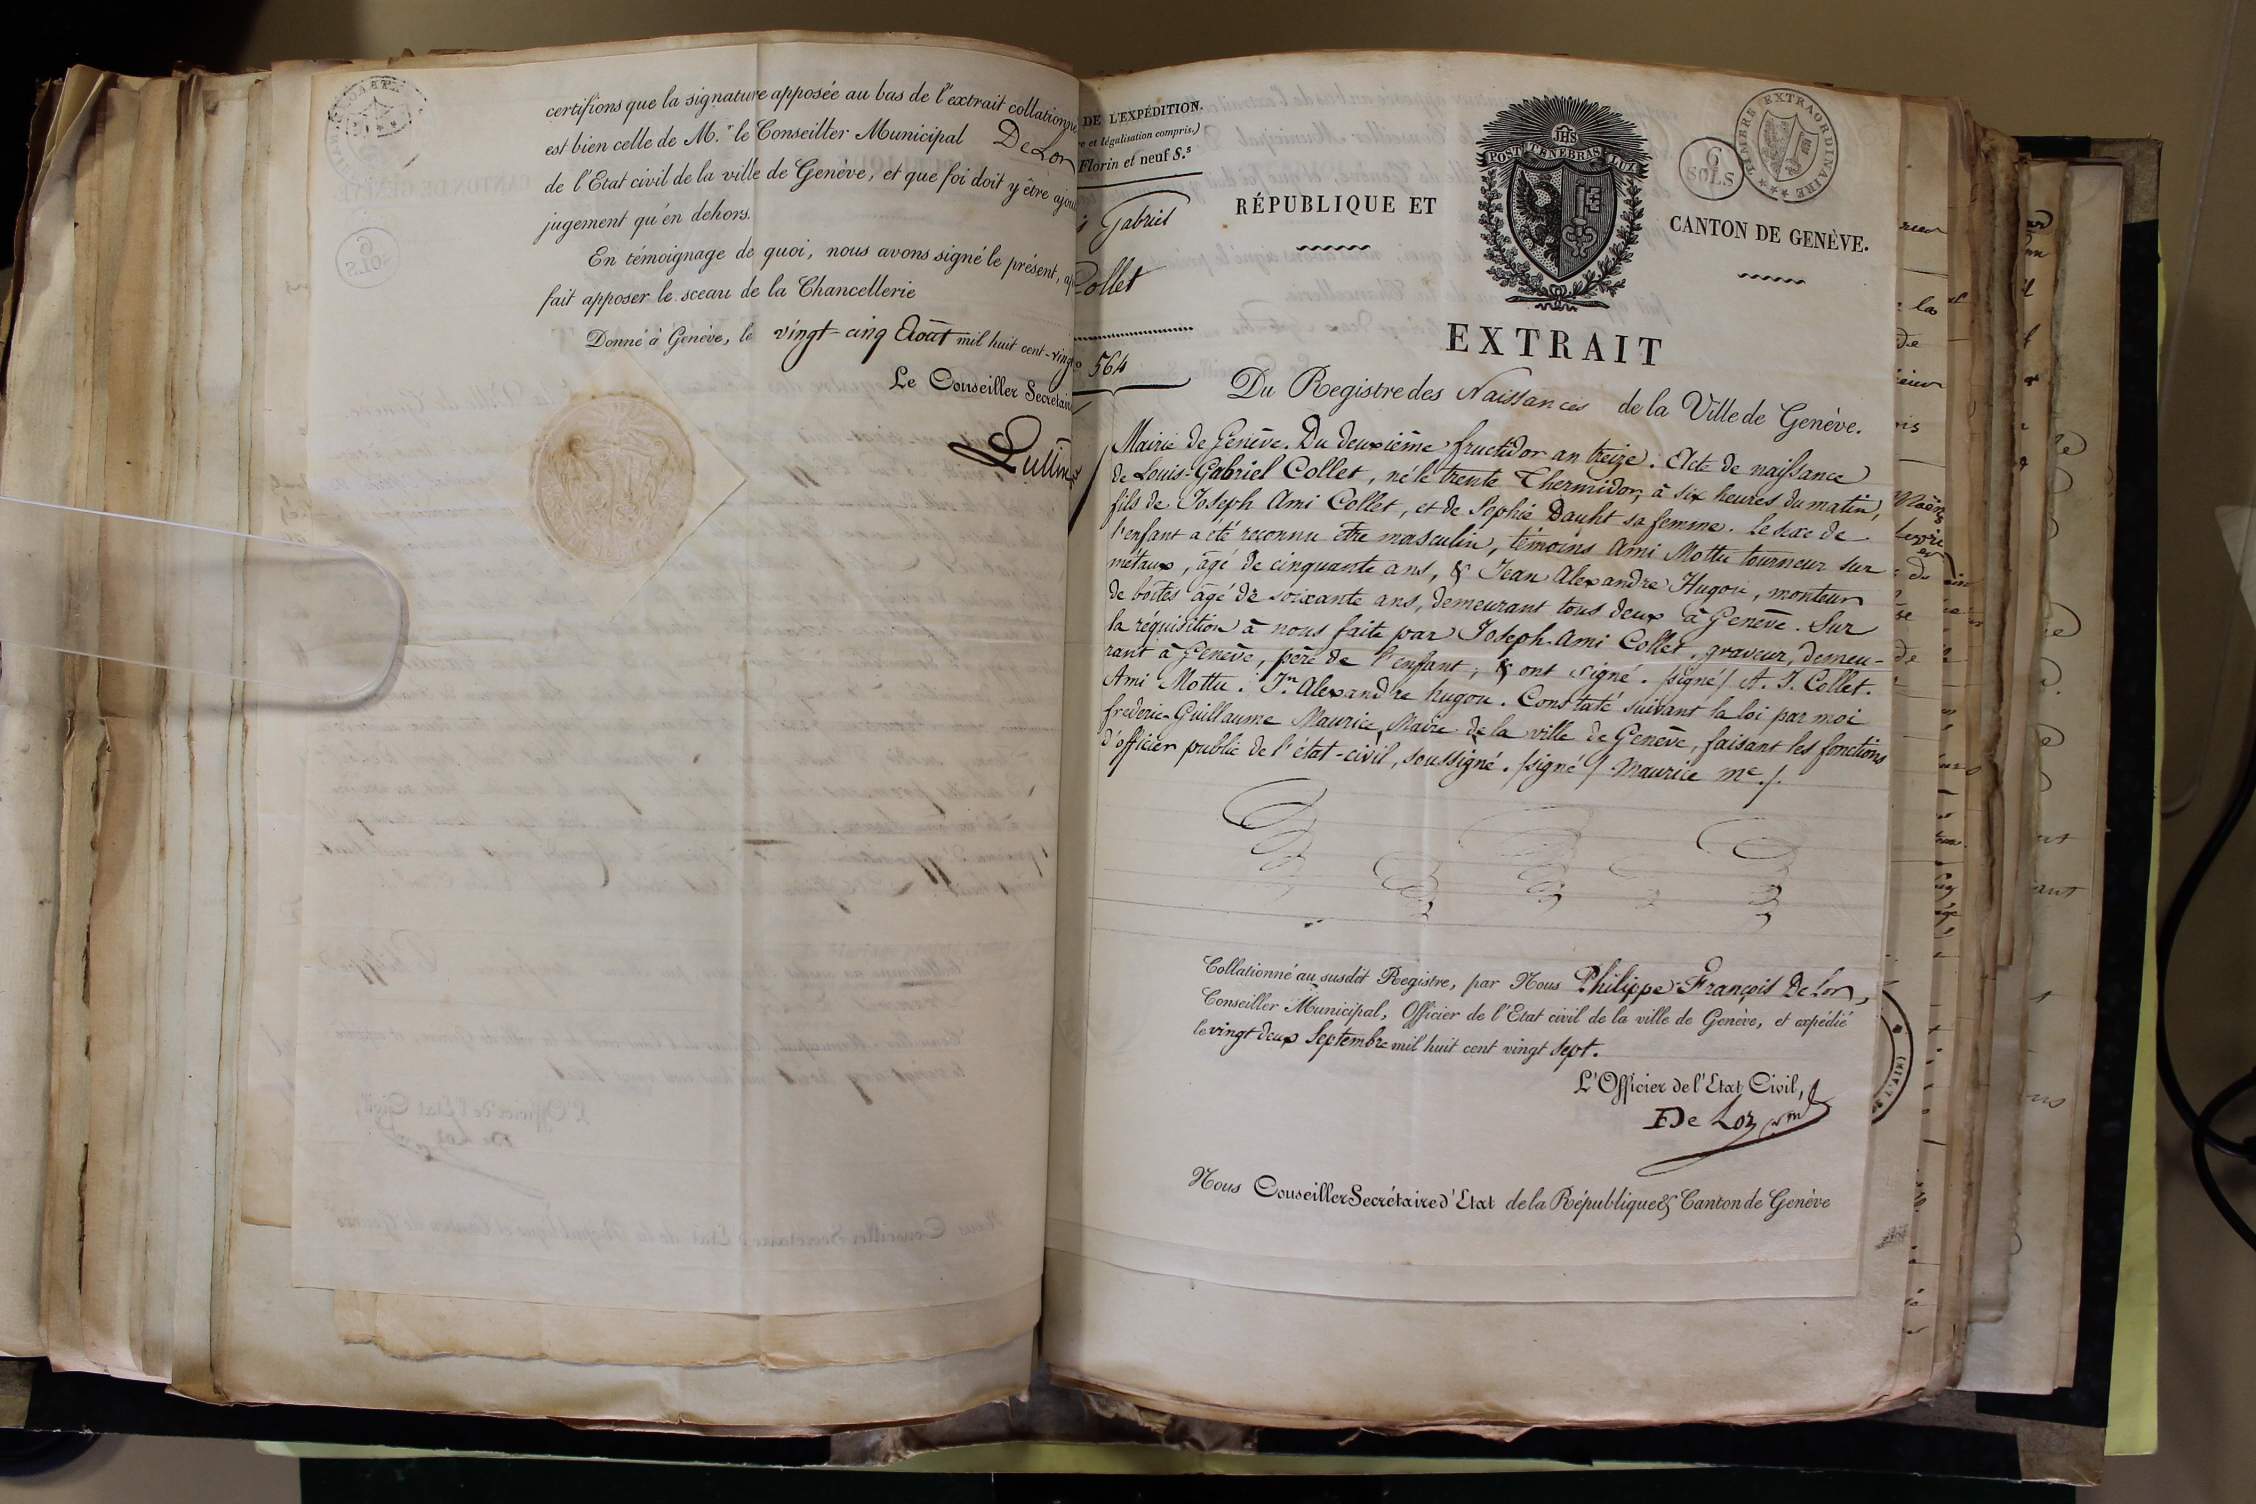 certifions que la signature apposée au bas de l'extrait collationné
est bien celle de M.r le Conseiller Municipal De Lor
de l'Etat civil de la ville de Genève, et que foi doit y être ajou
jugement qu'en dehors.
En témoignage de quoi, nous avons signé le présent,
fait apposer le sceau de la Chancellerie
Donné à Genève, le vingt-cinq Août mil huit cent-vingt
Le Conseiller Secrétaire
DE L'EXPÉDITION.
re et légalisation compris.)
Florin et neuf S.s
Gabriel
Collet
564
JHS
POST TENEBRAS LUX
6
SOLS
TIMBRE EXTRAORDINAIRE
RÉPUBLIQUE ET
CANTON DE GENÈVE.
EXTRAIT
Du Registre des Naissances de la Ville de Genève.
Mairie de Genève. Du deuxième fructidor an treize. Acte de naissance
de Louis-Gabriel Collet, né le trente Thermidor, à six heures du matin,
fils de Joseph Ami Collet, et de Sophie Dauht sa femme. Le sexe de
l'enfant a été reconnu être masculin, témoins Ami Mottu tourneur sur
métaux, âgé de cinquante ans, & Jean Alexandre Hugou, monteur
de boîtes âgé de soixante ans, demeurant tous deux à Genève. Sur
la réquisition à nous faite par Joseph-Ami Collet, graveur, demeu-
rant à Genève, père de l'enfant, & ont signé. /signé/ A. J. Collet.
Ami Mottu. J.n Alexandre hugou. Constaté suivant la loi par moi
frederic-Guillaume Maurice, Maire de la ville de Genève, faisant les fonctions
d'officier public de l'état-civil, soussigné. /signé/ Maurice m.e/.
Collationné au susdit Registre, par Nous Philippe-François De Lor,
Conseiller Municipal, Officier de l'Etat civil de la ville de Genève, et expédié
le vingt deux Septembre mil huit cent vingt sept.
L'Officier de l'Etat Civil,
De Lor
Nous Conseiller Secrétaire d'Etat de la République & Canton de Genève